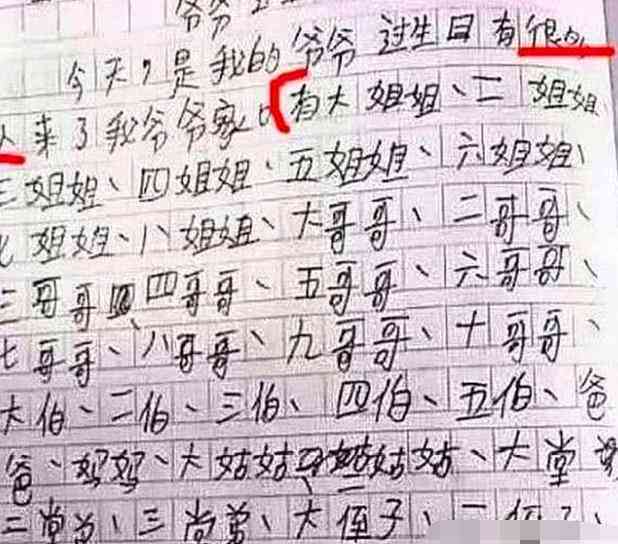 爷爷
今天,是我的爷爷过生日有很多
人来了我爷爷家。有大姐姐、二姐姐
三姐姐、四姐姐、五姐姐、六姐姐、
七姐姐、八姐姐、大哥哥、二哥哥、
三哥哥四哥哥、五哥哥、六哥哥、
七哥哥、八哥哥、九哥哥、十哥哥、
大伯、二伯、三伯、四伯、五伯、爸
爸、妈妈、大姑姑、二姑姑、大堂弟
二堂弟、三堂弟、大侄子、二侄子、